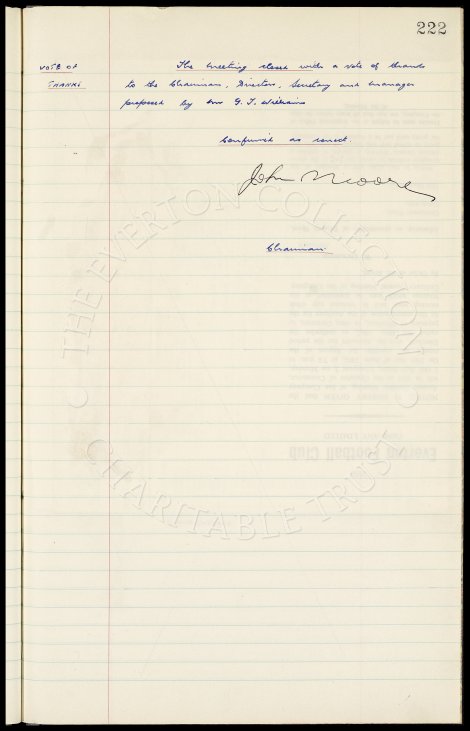 222
VOTE OF
THANKS
The meeting closed with a vote of thanks
to the Chairman, Directors, Secretary and Manager
proposed by Mr G. T. Williams
Confirmed as correct.
John Moores
Chairman
THE EVERTON COLLECTION
CHARITABLE TRUST
Everton Football Club